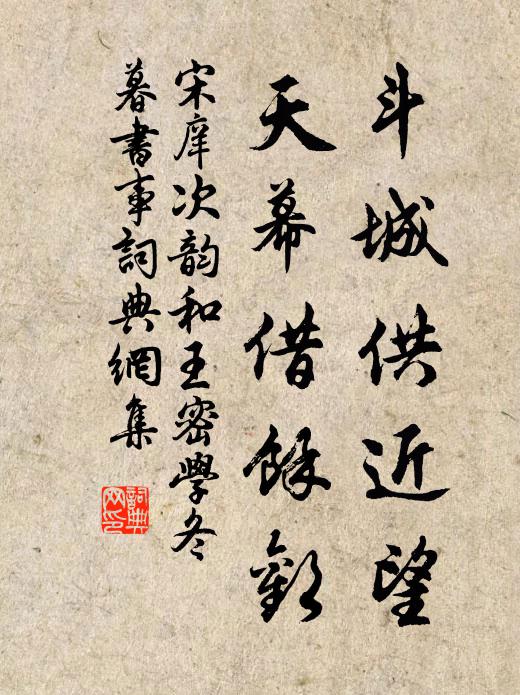 斗城供近望
天幕借餘歡
宋庠次韵和王密學冬
暮書事詞典網集
詞典
网印